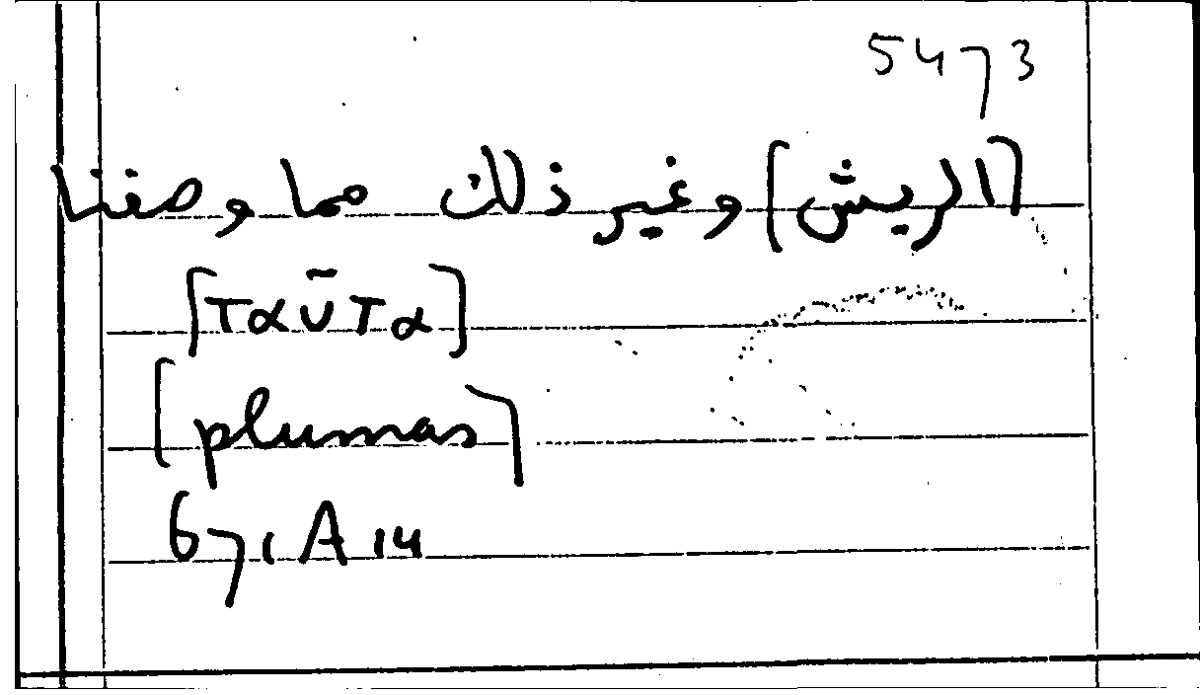 5473
[الريش] وغير ذلك مما وصفنا
[ταῦτα]
[plumas]
671A14